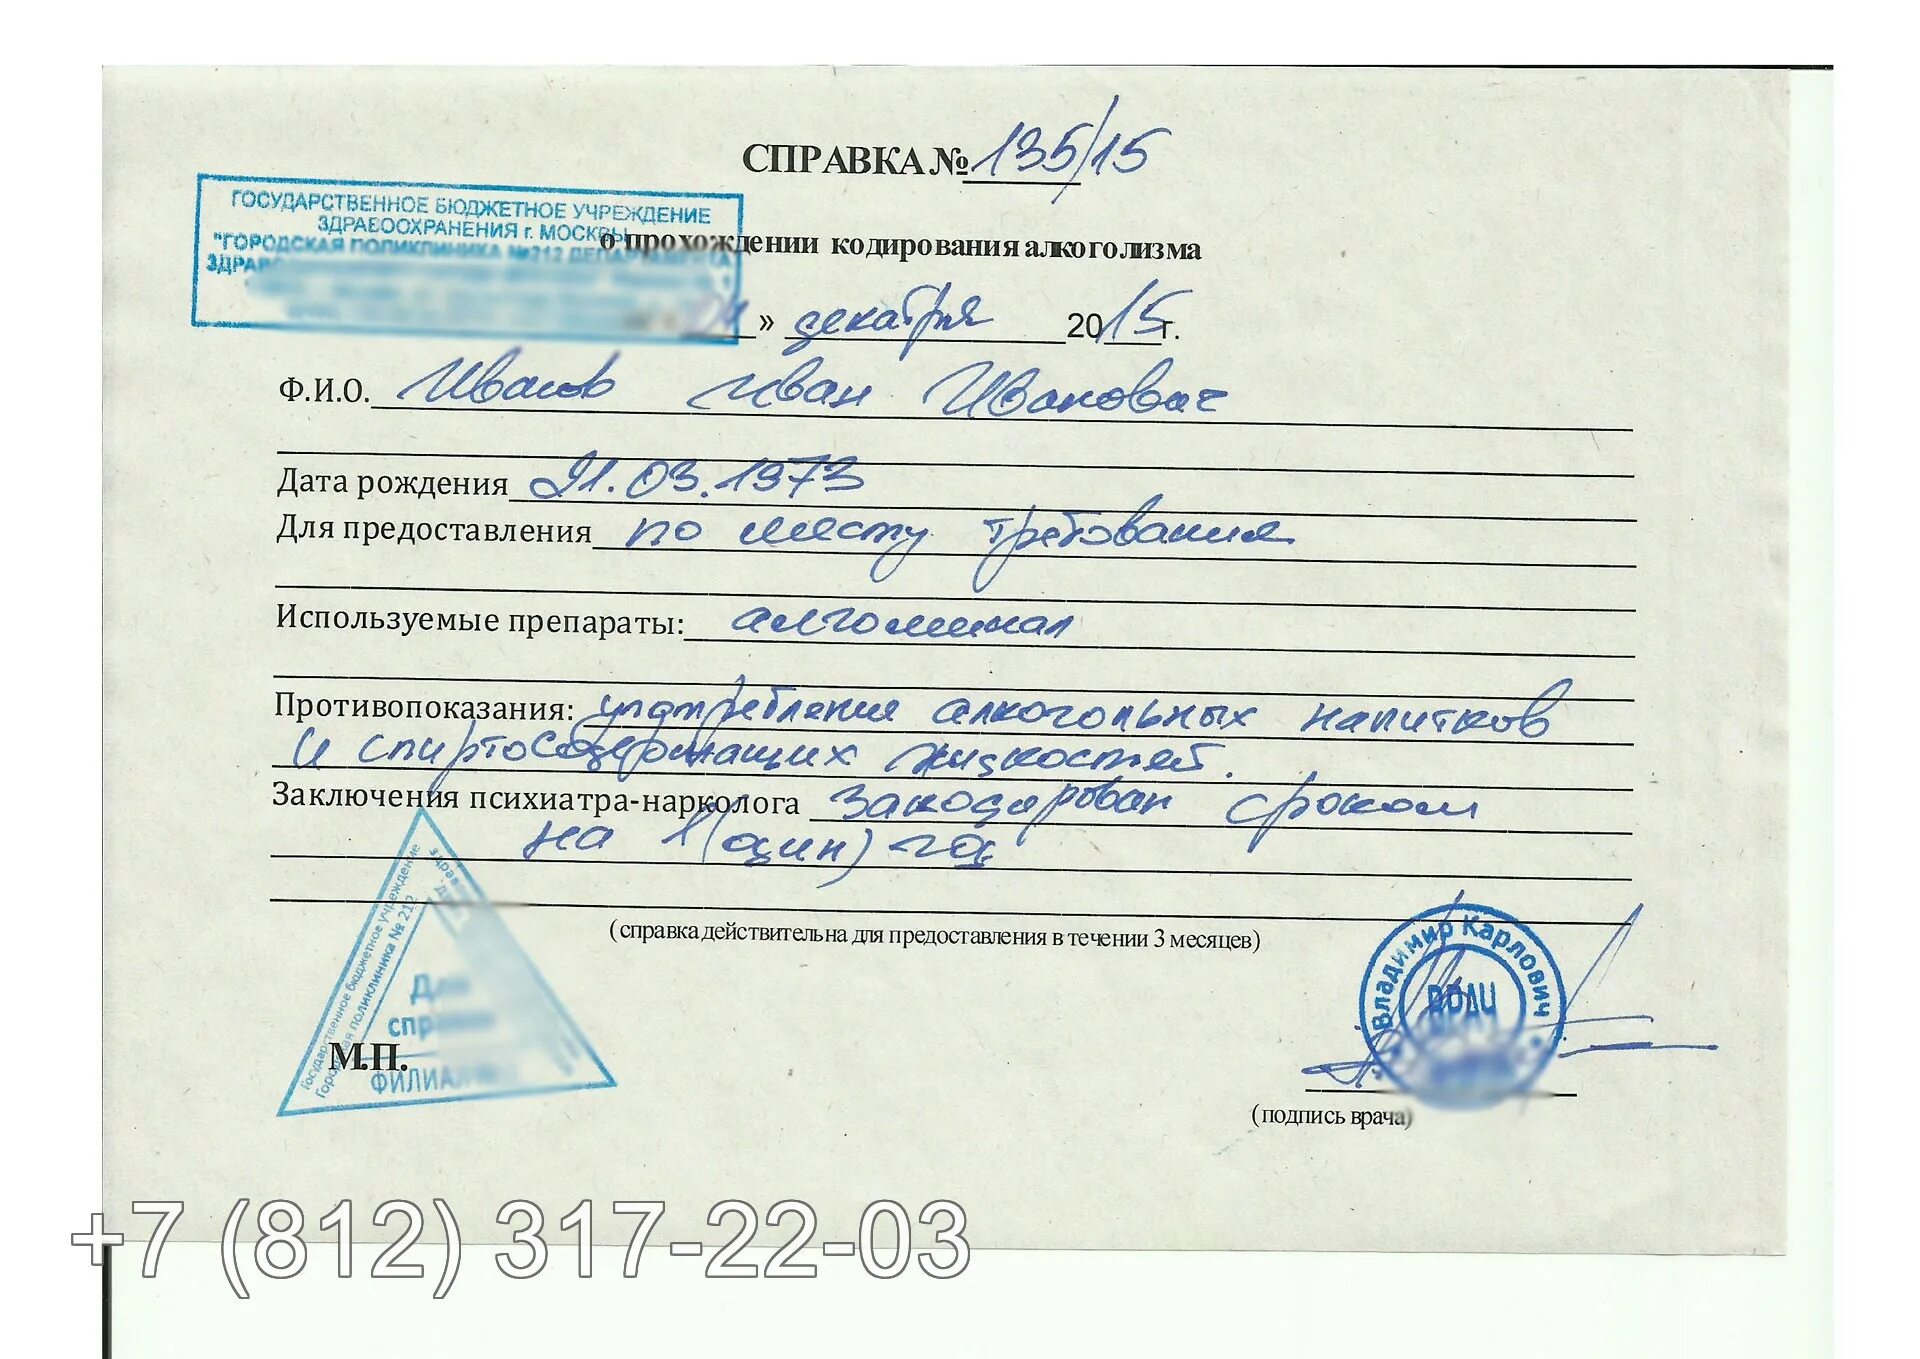 СПРАВКА № 135/15
ГОСУДАРСТВЕННОЕ БЮДЖЕТНОЕ УЧРЕЖДЕНИЕ
ЗДРАВООХРАНЕНИЯ г. МОСКВЫ
"ГОРОДСКАЯ ПОЛИКЛИНИКА №212 ДЕПАРТАМЕНТА
о прохождении кодирования алкоголизма
» декабря 2015 г.
Ф.И.О. Иванов Иван Иванович
Дата рождения 21.03.1973
Для предоставления по месту требования
Используемые препараты: алгоминал
Противопоказания: употребления алкогольных напитков
и спиртосодержащих жидкостей.
Заключения психиатра-нарколога закодирован сроком
на 1 (один) год
(справка действительна для предоставления в течении 3 месяцев)
Государственное бюджетное учреждение
Городская поликлиника № 212
Для
справок
ФИЛИАЛ
М.П.
Владимир Карлович
ВРАЧ
(подпись врача)
+7 (812) 317-22-03